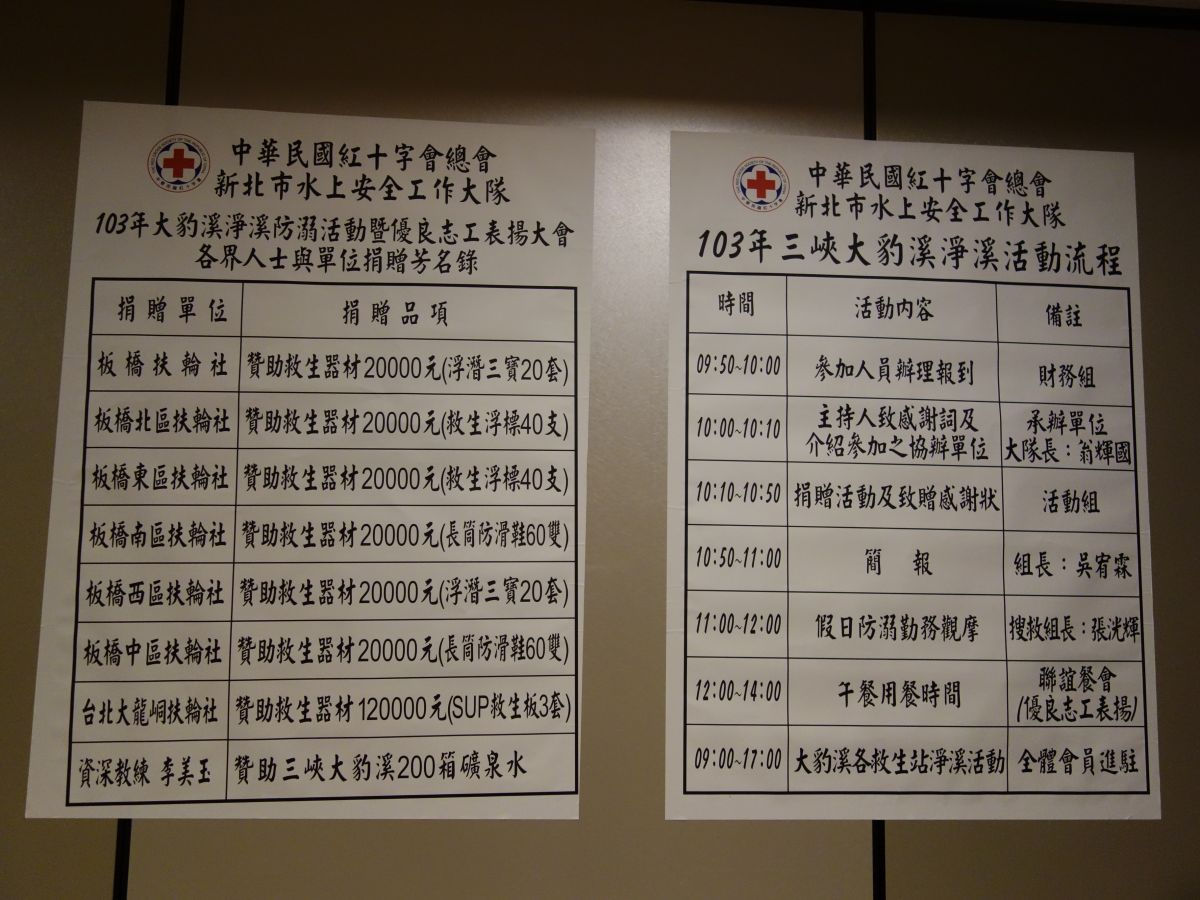 中華民國紅十字會總會
新北市水上安全工作大隊
103年大豹溪淨溪防溺活動暨優良志工表揚大會
各界人士與單位捐贈芳名錄
捐贈單位 捐贈品項
板橋扶輪社 贊助救生器材20000元(浮潛三寶20套)
板橋北區扶輪社 贊助救生器材20000元(救生浮標40支)
板橋東區扶輪社 贊助救生器材20000元(救生浮標40支)
板橋南區扶輪社 贊助救生器材20000元(長筒防滑鞋60雙)
板橋西區扶輪社 贊助救生器材20000元(浮潛三寶20套)
板橋中區扶輪社 贊助救生器材20000元(長筒防滑鞋60雙)
台北大龍峒扶輪社 贊助救生器材120000元(SUP救生板3套)
資深教練 李美玉 贊助三峽大豹溪200箱礦泉水
中華民國紅十字會總會
新北市水上安全工作大隊
103年三峽大豹溪淨溪活動流程
時間 活動內容 備註
09:50~10:00 參加人員辦理報到 財務組
10:00~10:10 主持人致感謝詞及 承辦單位
介紹參加之協辦單位 大隊長：翁輝國
10:10~10:50 捐贈活動及致贈感謝狀 活動組
10:50~11:00 簡報 組長：吳宥霖
11:00~12:00 假日防溺勤務觀摩 搜救組長：張洸輝
12:00~14:00 午餐用餐時間 聯誼餐會
(優良志工表揚)
09:00~17:00 大豹溪各救生站淨溪活動 全體會員進駐